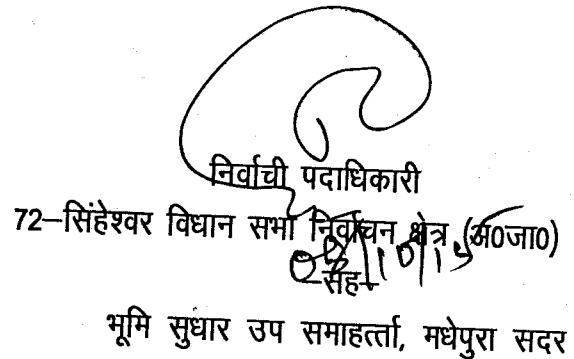 निर्वाची पदाधिकारी
72–सिंहेश्वर विधान सभा निर्वाचन क्षेत्र (अ0जा0)
–सह–
भूमि सुधार उप समाहर्त्ता, मधेपुरा सदर